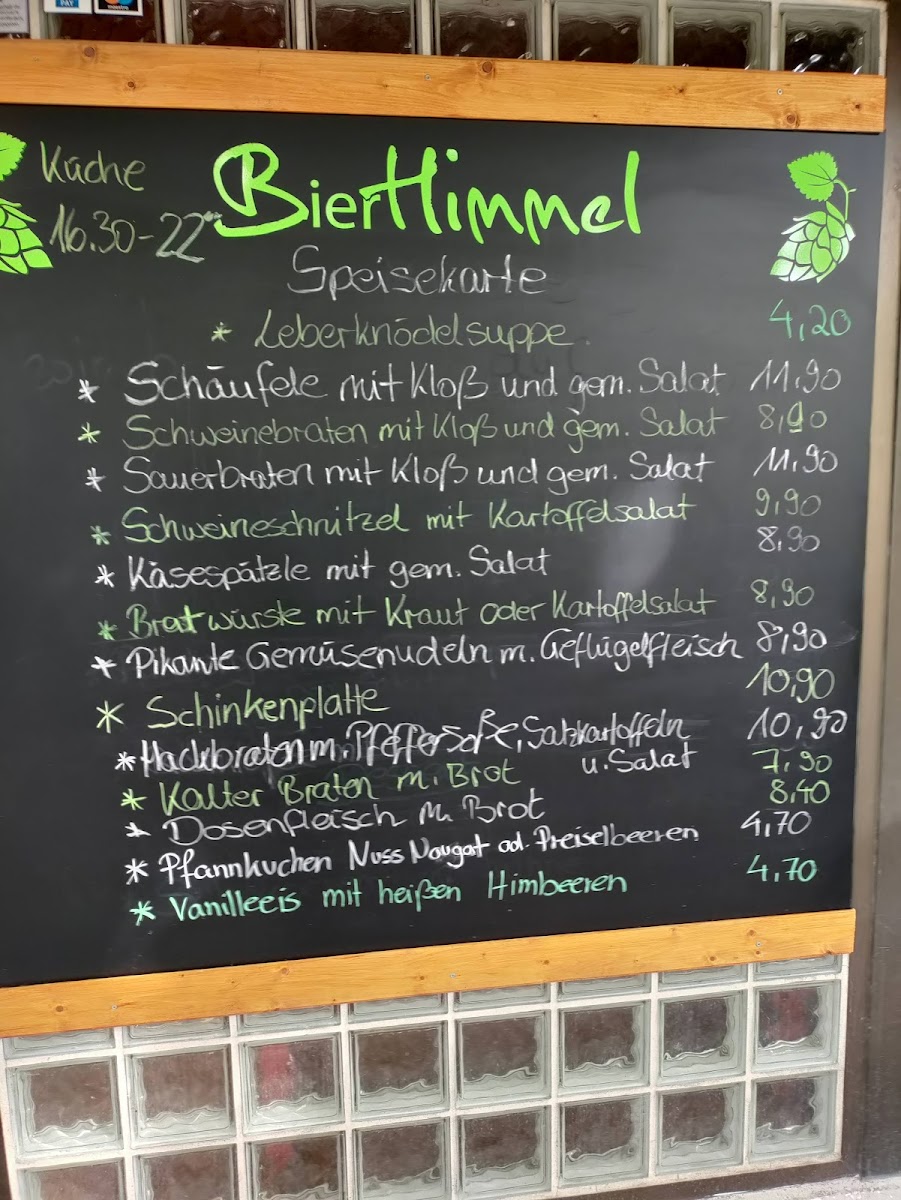 Küche
16.30-22
BierHimmel
Speisekarte
* Leberknödelsuppe 4,20
* Schäufele mit Kloß und gem. Salat 11,90
* Schweinebraten mit Kloß und gem. Salat 8,90
* Sauerbraten mit Kloß und gem. Salat 11,90
* Schweineschnitzel mit Kartoffelsalat 9,90
* Käsespätzle mit gem. Salat 8,90
* Bratwürste mit Kraut oder Kartoffelsalat 8,90
* Pikante Gemüsenudeln m. Geflügelfleisch 8,90
* Schinkenplatte 10,90
* Hackbraten m. Pfeffersoße, Salzkartoffeln 10,90
u. Salat
* Kalter Braten m. Brot 7,90
* Dosenfleisch m. Brot 8,40
* Pfannkuchen Nuss Nougat od. Preiselbeeren 4,70
* Vanilleeis mit heißen Himbeeren 4,70